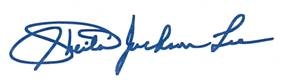 Sheila Jackson Lee